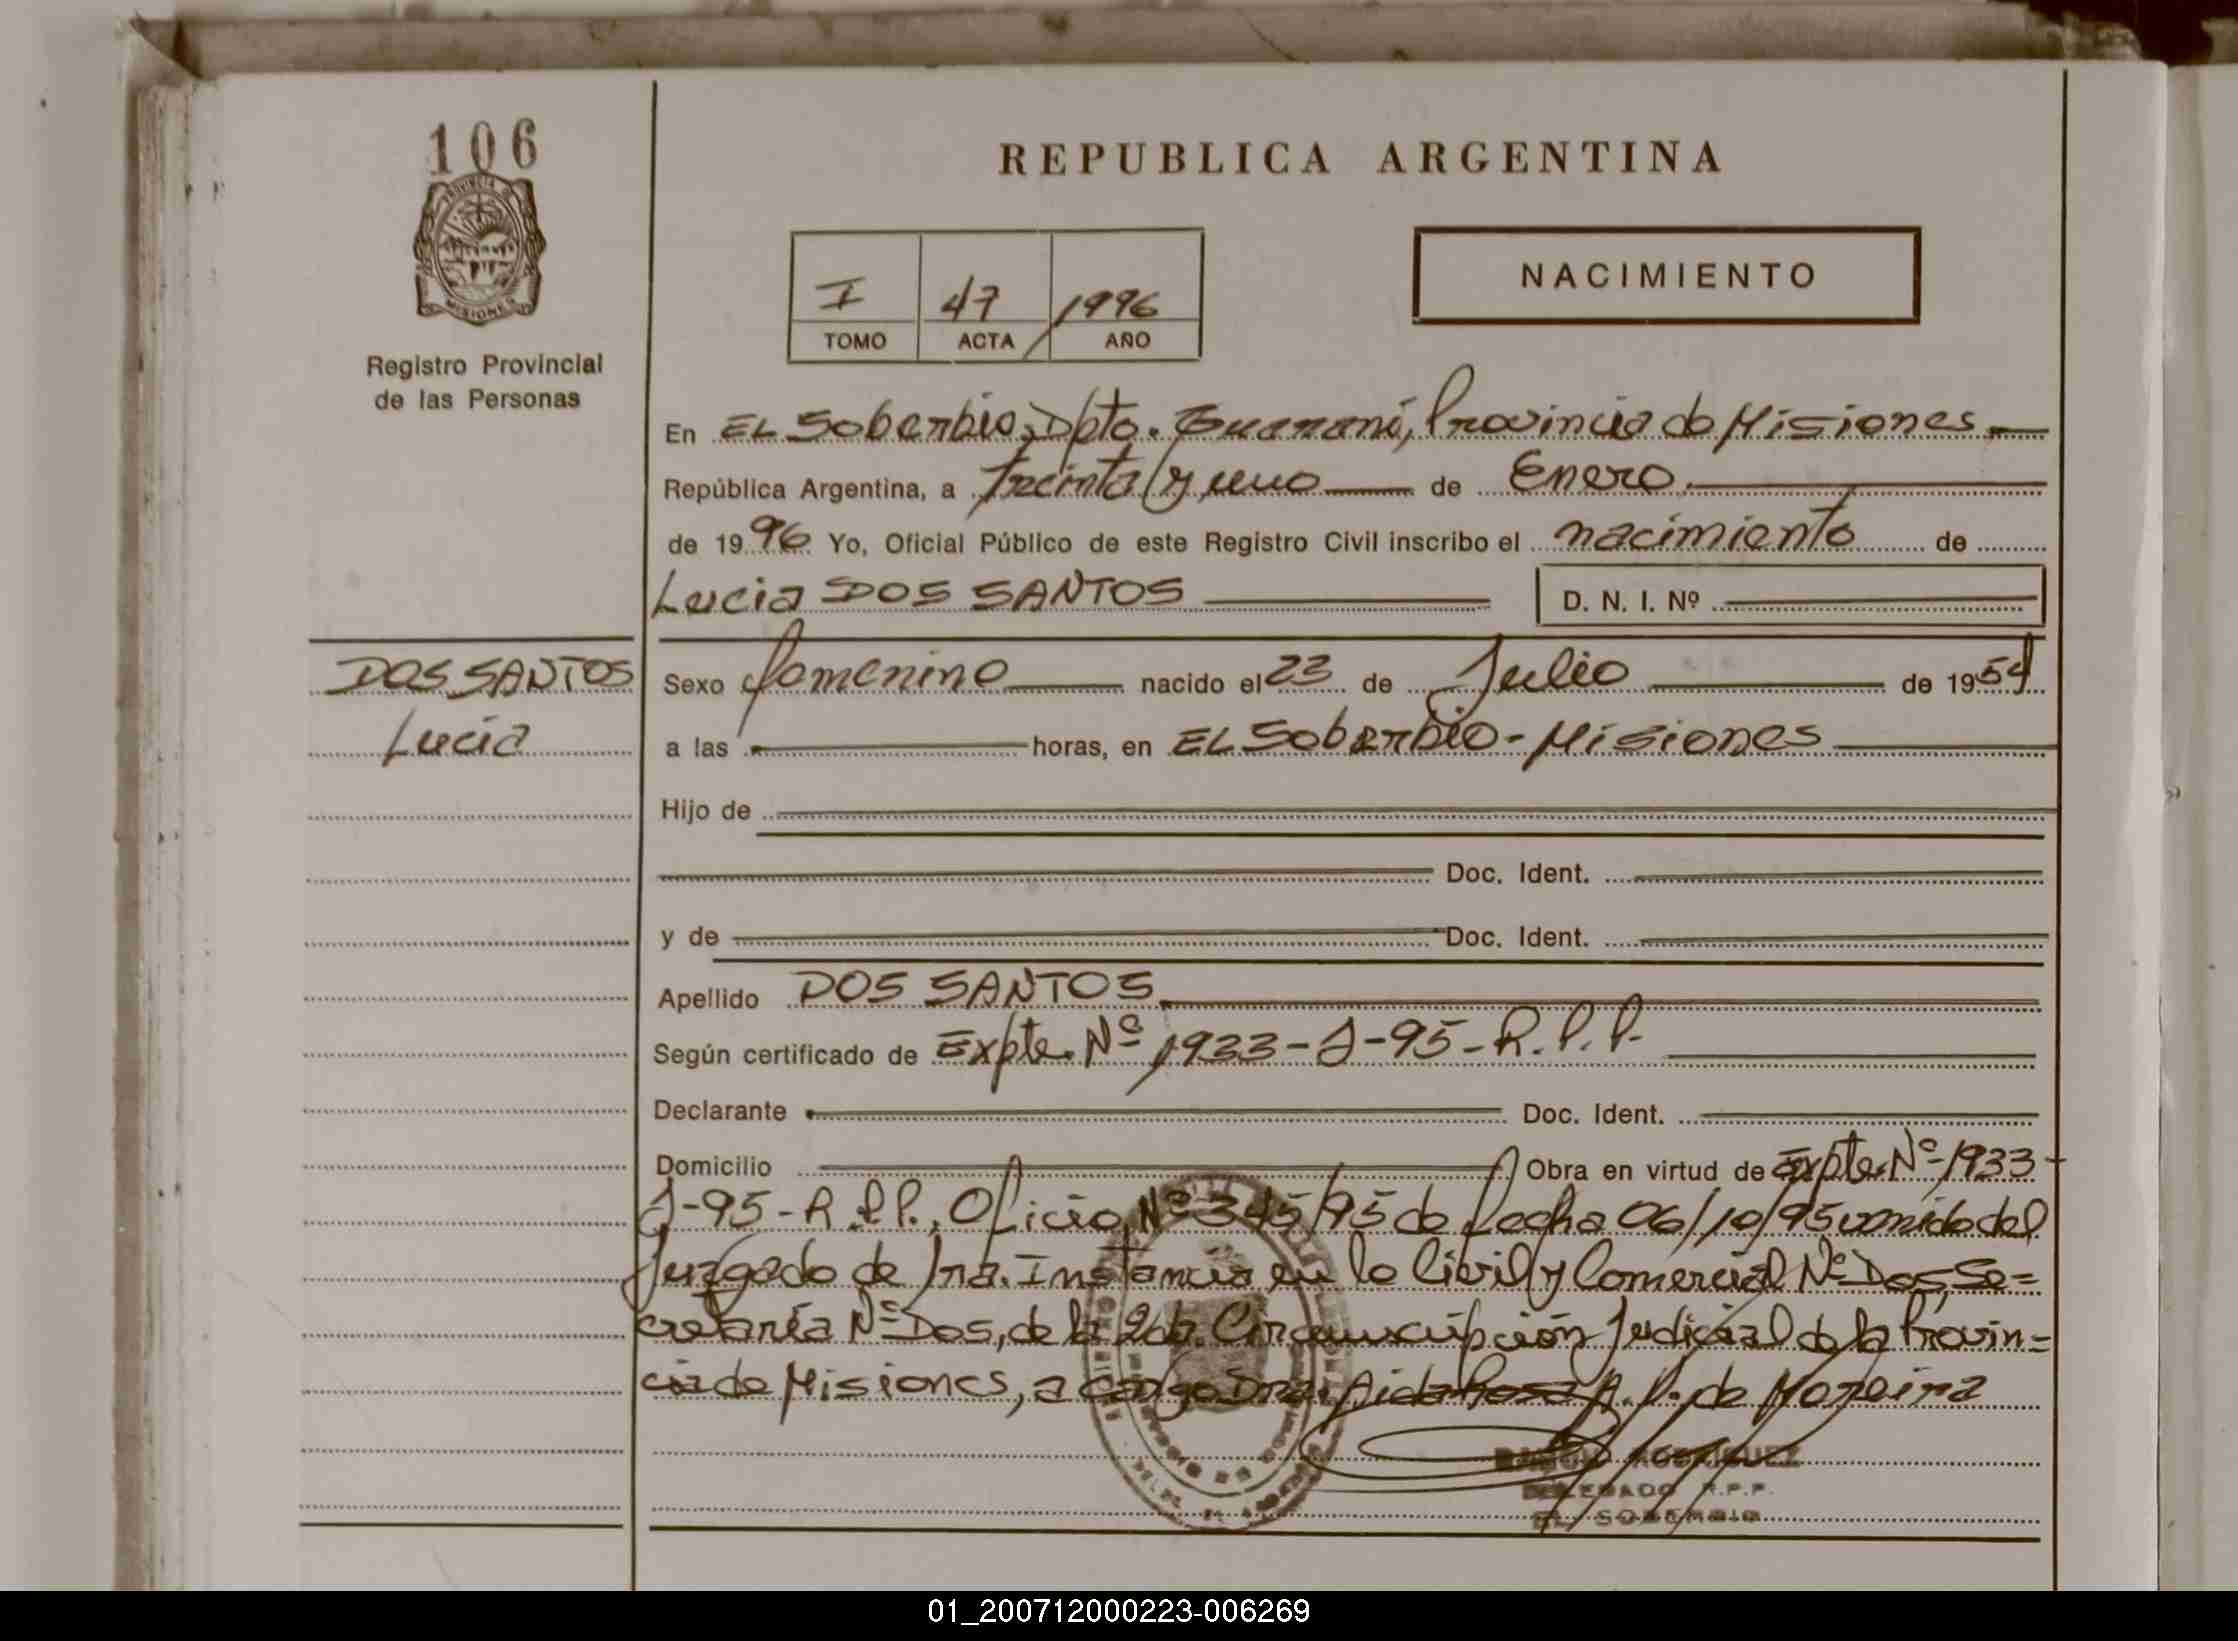 106
PROVINCIA DE
MISIONES
Registro Provincial
de las Personas
REPUBLICA ARGENTINA
I 47 1996
TOMO ACTA AÑO
NACIMIENTO
En EL Soberbio, Dpto. Guaraní, Provincia de Misiones
República Argentina, a treinta y uno de Enero
de 1996 Yo, Oficial Público de este Registro Civil inscribo el nacimiento de
Lucia DOS SANTOS D. N. I. Nº
DOS SANTOS
Lucia
Sexo femenino nacido el 23 de Julio de 1954
a las horas, en EL Soberbio - Misiones
Hijo de
Doc. Ident.
y de Doc. Ident.
Apellido DOS SANTOS
Según certificado de Expte. Nº 1933-J-95-R.P.P.
Declarante Doc. Ident.
Domicilio Obra en virtud de Expte. Nº 1933-
J-95-R.P.P., Oficio Nº 345/95 de fecha 06/10/95 venido del
Juzgado de 1ra. Instancia en lo Civil y Comercial Nº Dos, Se=
cretaría Nº Dos, de la 2da. Circunscripción Judicial de la Provin=
cia de Misiones, a cargo Dra. Aida Rosa A. P. de Moreira
RODRIGUEZ
DELEGADO R.P.P.
EL SOBERBIO
01_200712000223-006269